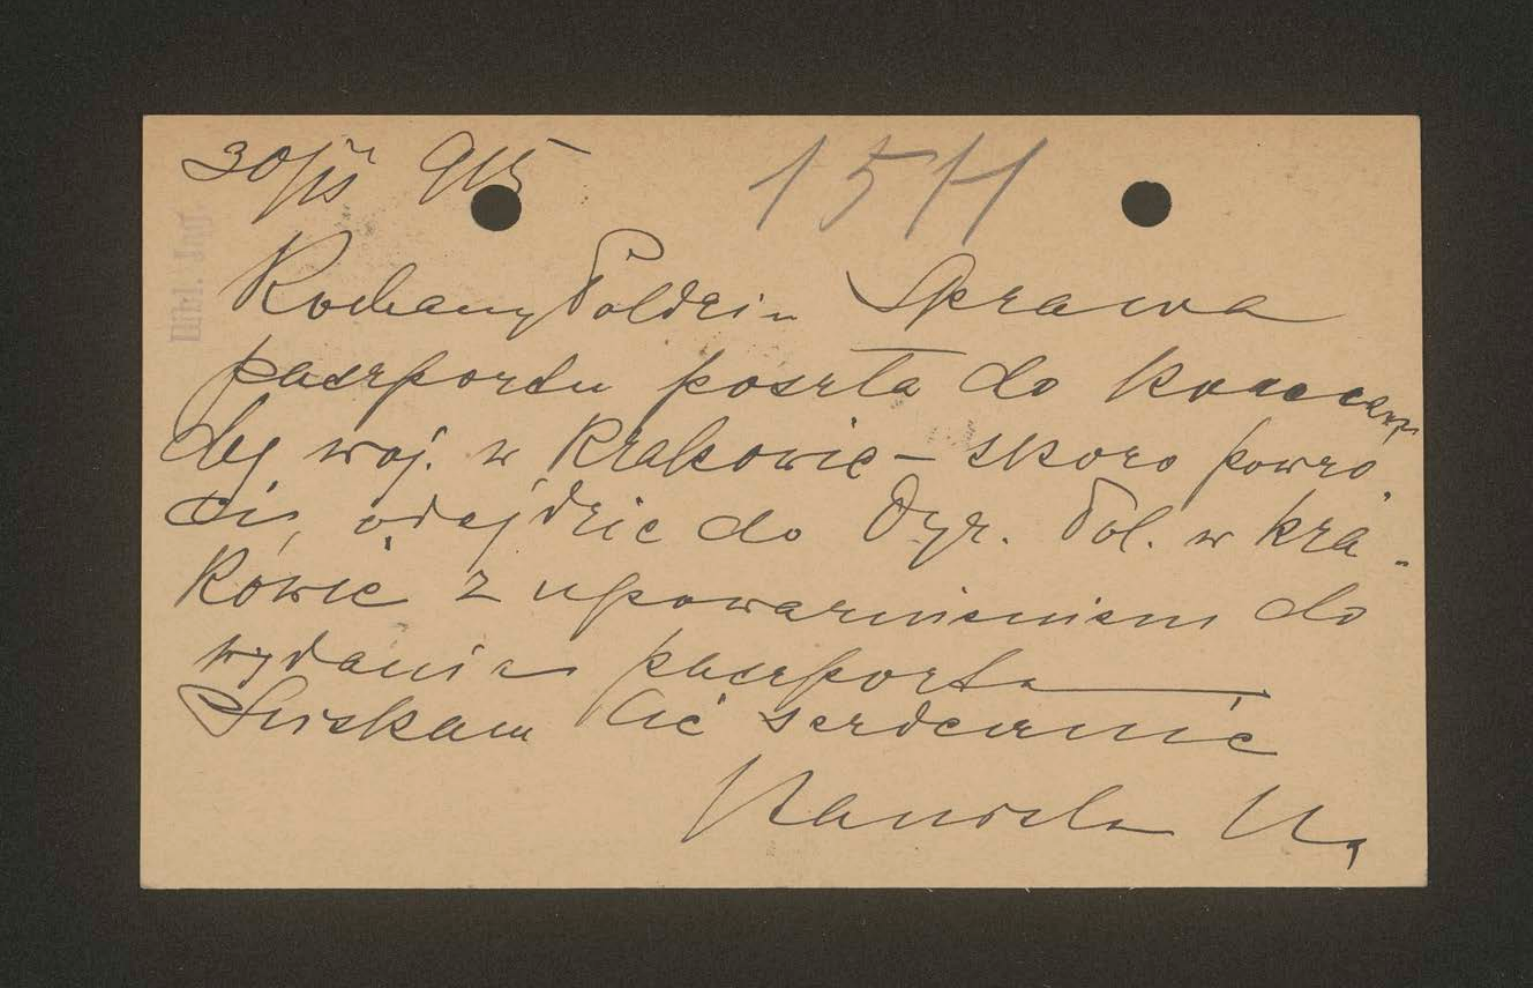 30/IX 915
1511
Bibl. Jag.
Kochany Poldziu Sprawa
paszportu poszła do Komen
dy woj. w Krakowie – skoro powró
ci, odejdzie do Dyr. Pol. w Kra-
kowie z upoważnieniem do
wydania paszportu
Ściskam Cię serdecznie
Stanisław